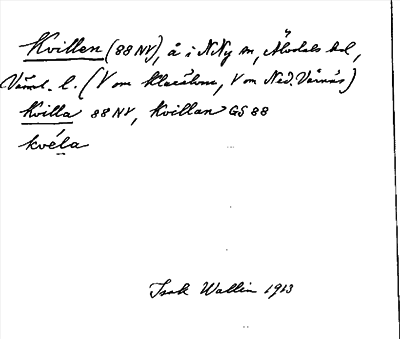 Kvillen (88 NV), å i N Ny sn, Älvdals hd,
Värml. l. (V om Klarälven, V om Ned. Värnäs)
Kvilla 88 NV, Kvillan GS 88
kvéla
Isak Wallin 1913